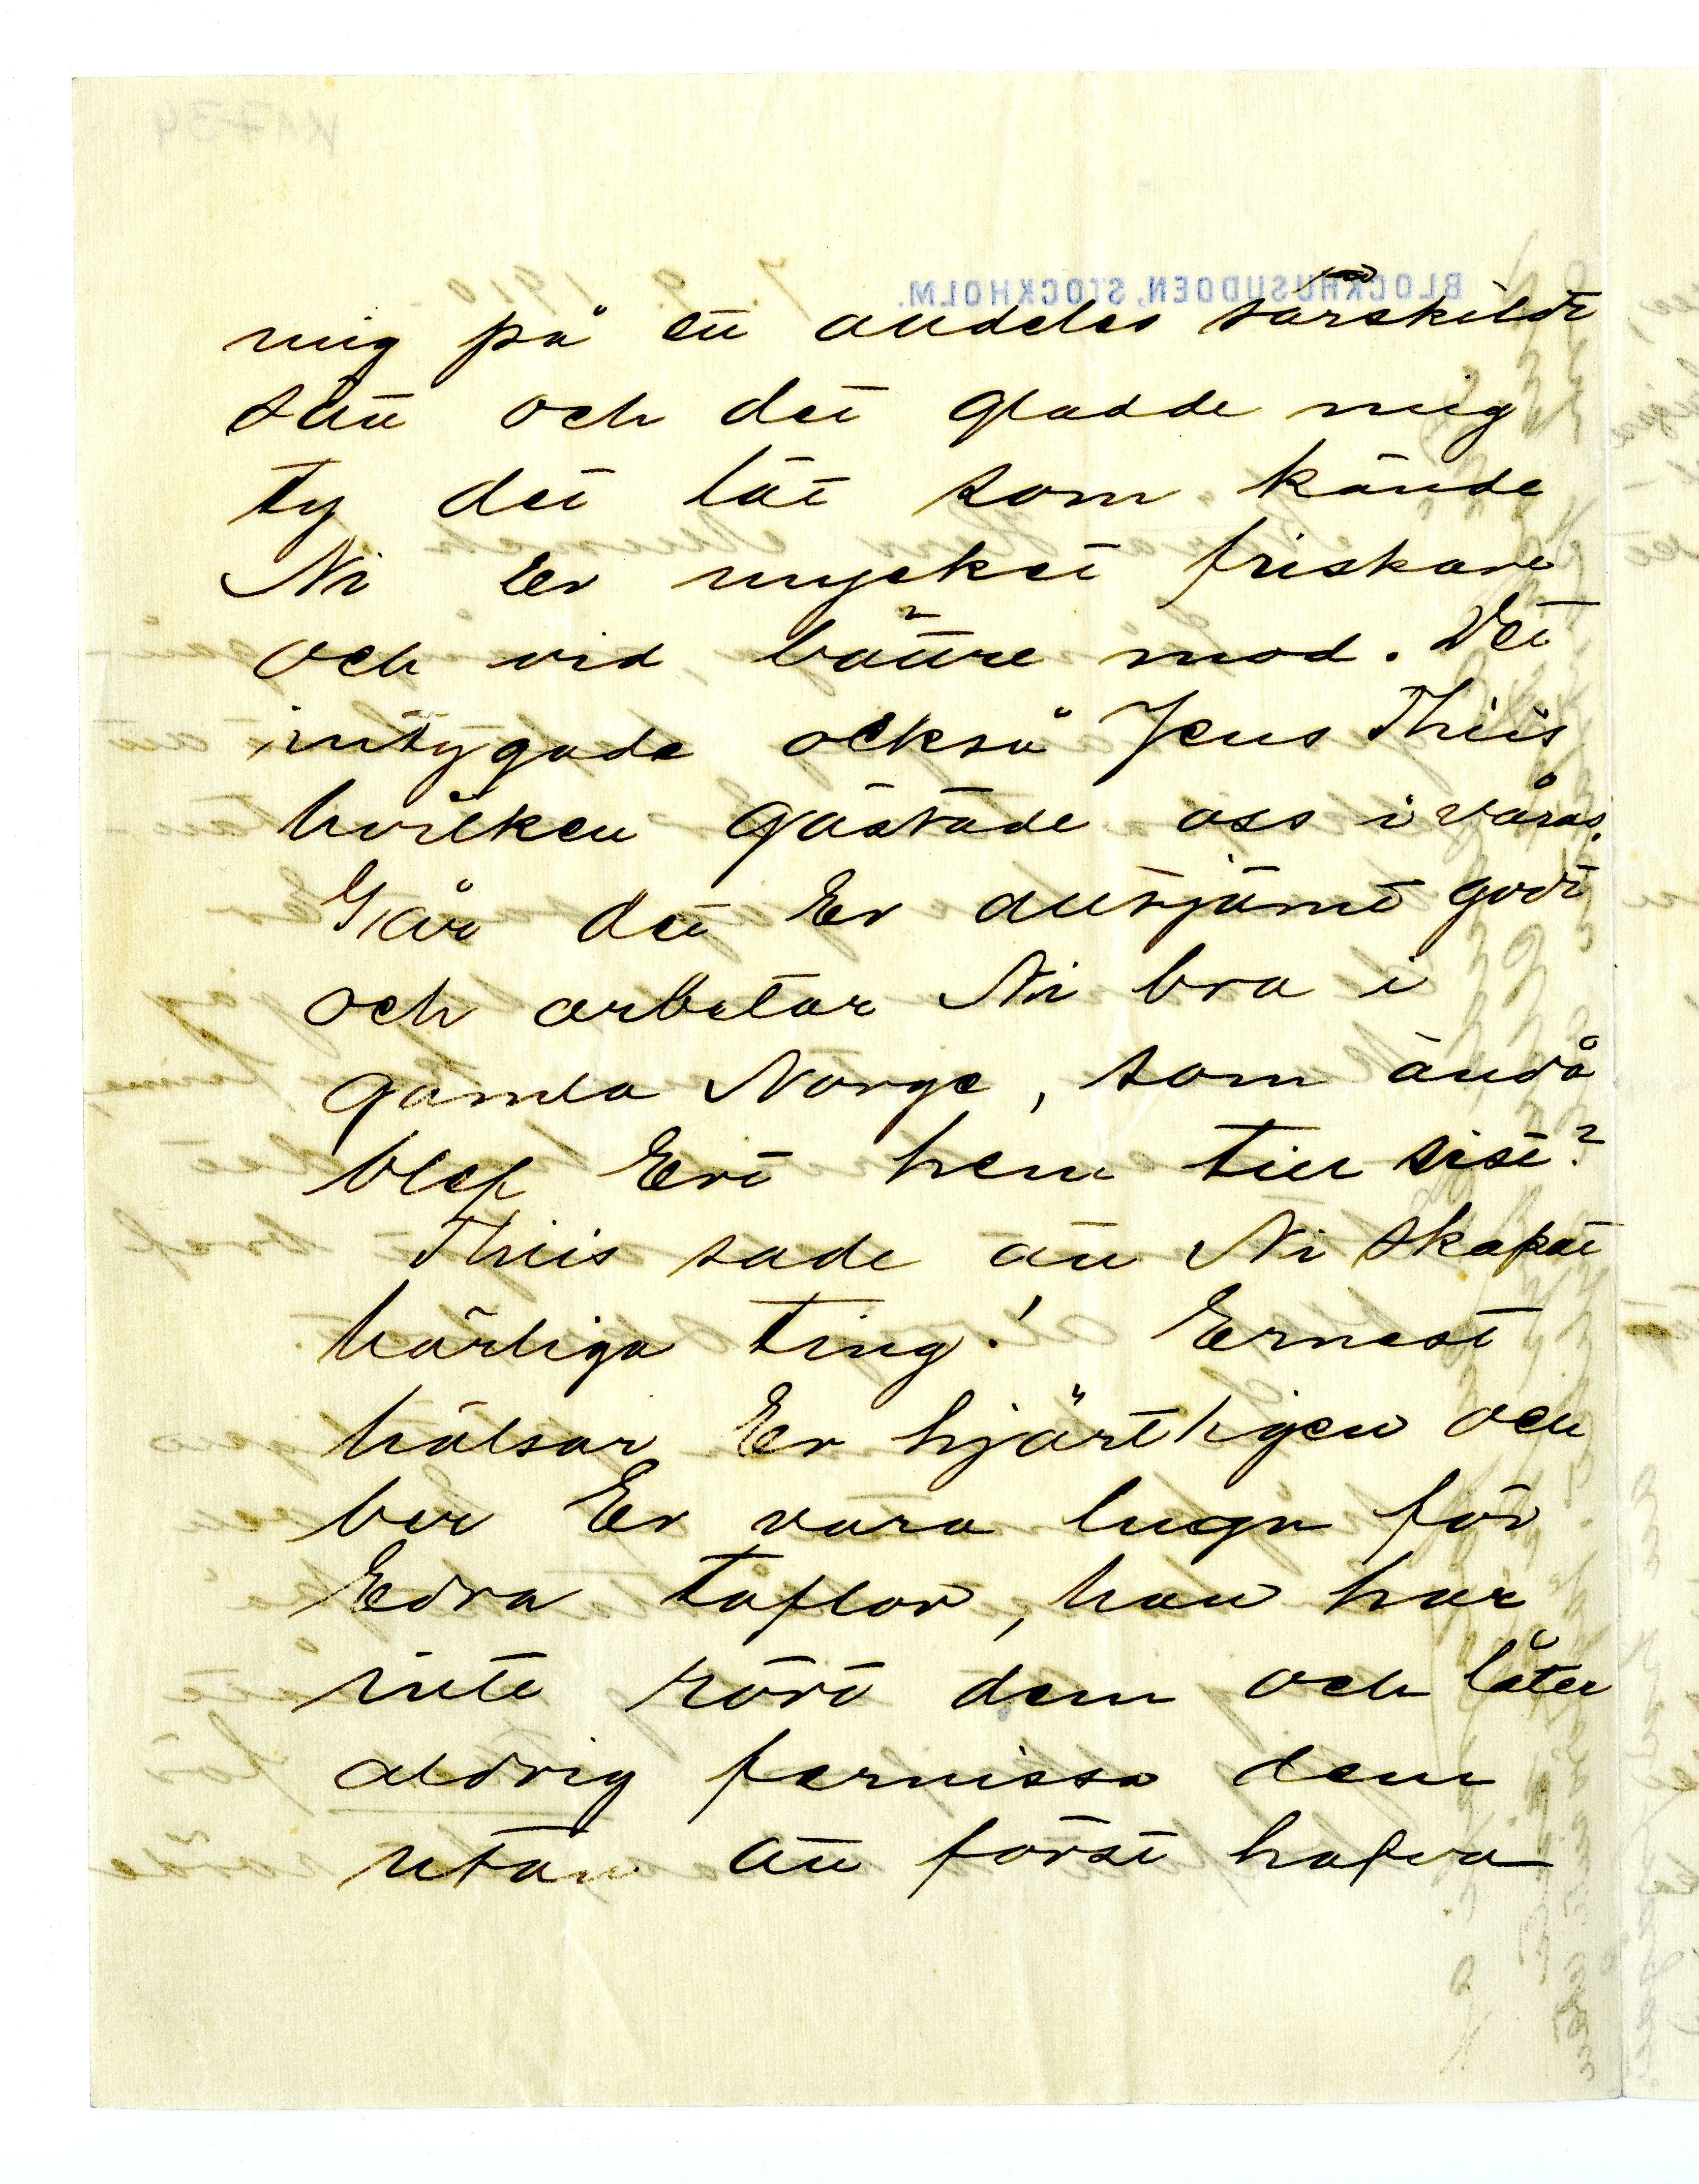 mig på ett alldeles särskildt
sätt och det gladde mig
ty det lät som kände
Ni Er mycket friskare
och vid bättre mod. Det
intygade också Jens Thiis
hvilken gästade oss i våras.
Går det Er alltjämt godt
och arbetar Ni bra i
gamla Norge, som ändå
blef Ert hem till sist?
Thiis sade att Ni skapat
härliga ting! Ernest
hälsar Er hjärtligen och
ber Er vara lugn för
Edra taflor, han har
inte rört dem och låter
aldrig fernissa dem
utan att först hafva
BLOCKHUSUDDEN, STOCKHOLM.
7. 9. 1910
K1734